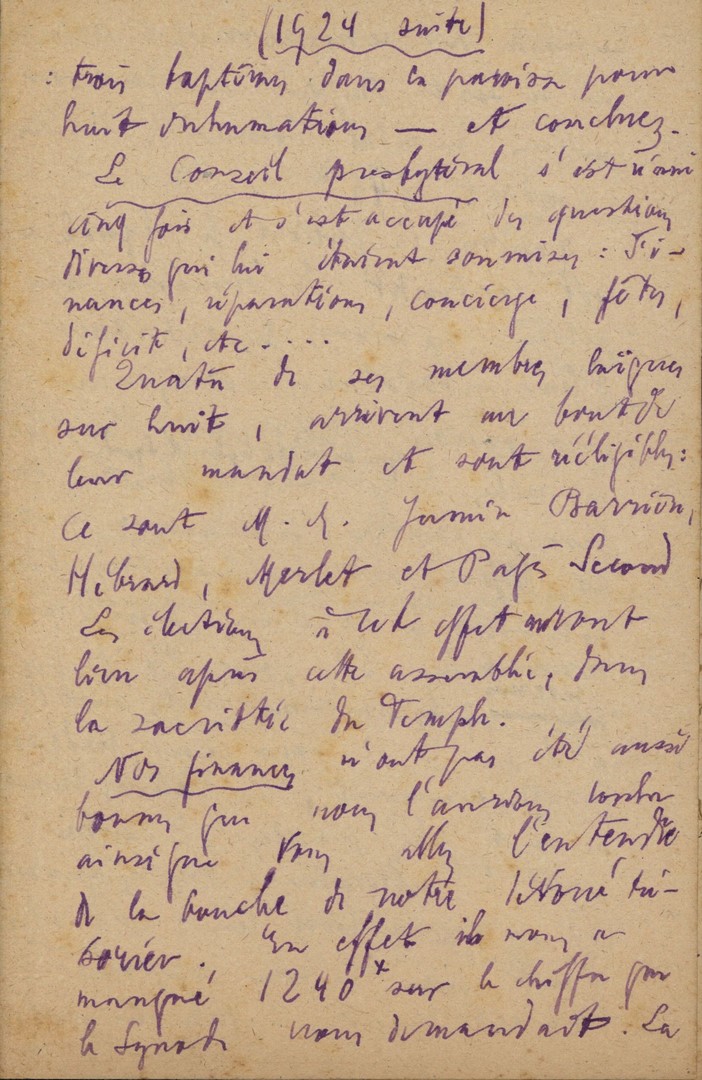 (1924 suite)
: trois baptêmes dans la paroisse pour
huit inhumations — et concluez.
Le Conseil presbytéral s'est réuni
cinq fois et s'est occupé des questions
diverses qui lui étaient soumises : Fi-
nances, réparations, concierge, fêtes,
déficit, etc....
Quatre de ses membres laïques
sur huit, arrivent au bout de
leur mandat et sont rééligibles :
Ce sont M. M. Jamin Barrion,
Hébrard, Merlet et Pagès Second
Les élections à cet effet auront
lieu après cette assemblée, dans
la sacristie du Temple.
Nos finances n'ont pas été aussi
bonnes que nous l'aurions voulu
ainsi que vous allez l'entendre
de la bouche de notre dévoué tré-
sorier. En effet il nous a
manqué 1240 x sur le chiffre que
le Synode nous demandait. La